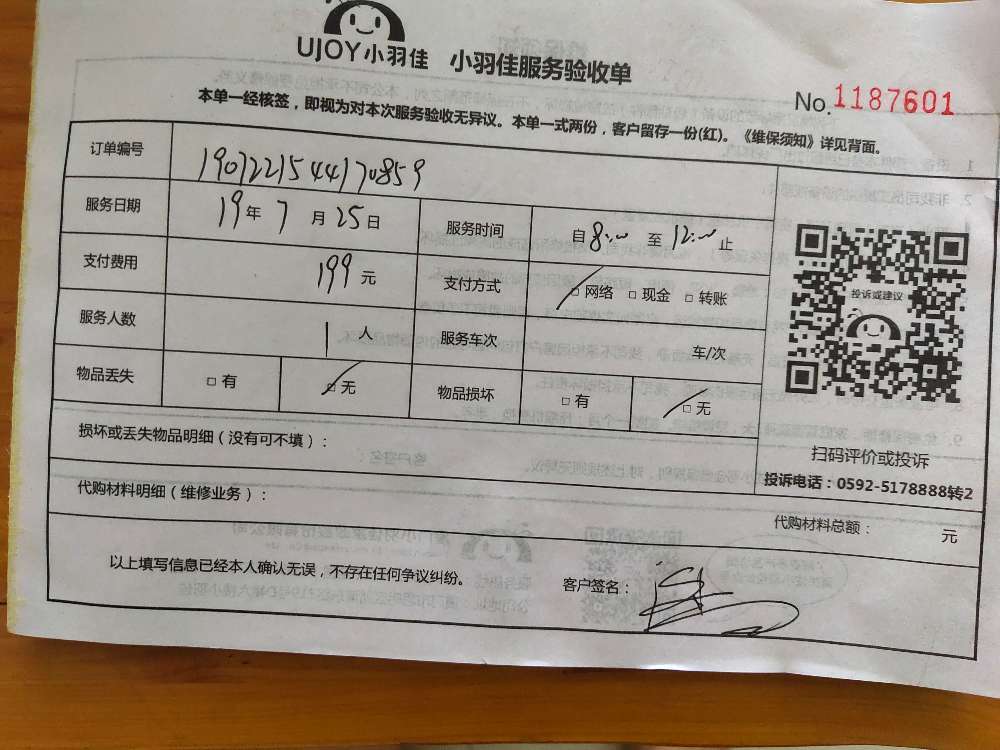 UJOY小羽佳 小羽佳服务验收单
No. 1187601
本单一经核签，即视为对本次服务验收无异议。本单一式两份，客户留存一份(红)。《维保须知》详见背面。
订单编号 190722154417 0859
服务日期 19年7月25日 服务时间 自8:00至12:00止
支付费用 199元 支付方式 □网络 □现金 □转账
服务人数 1人 服务车次 车/次
物品丢失 □有 □无 物品损坏 □有 □无
投诉或建议
扫码评价或投诉
投诉电话：0592-5178888转2
损坏或丢失物品明细（没有可不填）：
代购材料明细（维修业务）：
代购材料总额： 元
以上填写信息已经本人确认无误，不存在任何争议纠纷。 客户签名：